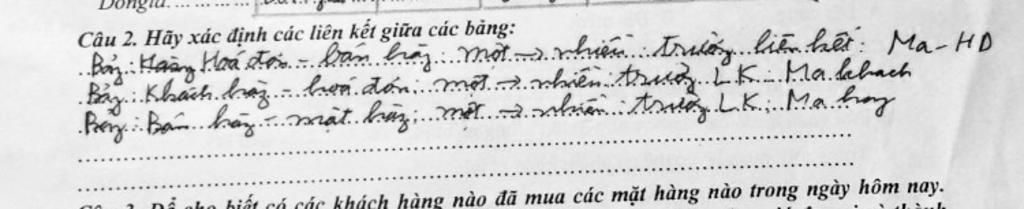 Dongia
Câu 2. Hãy xác định các liên kết giữa các bảng:
Bảng: Hoá đơn - bán hàng: một → nhiều: trường liên kết: Ma-HD
Bảng: Khách hàng - hoá đơn: một → nhiều: trường LK: Ma khach
Bảng: Bán hàng - mặt hàng: một → nhiều: trường LK: Ma hang
biết có các khách hàng nào đã mua các mặt hàng nào trong ngày hôm nay.